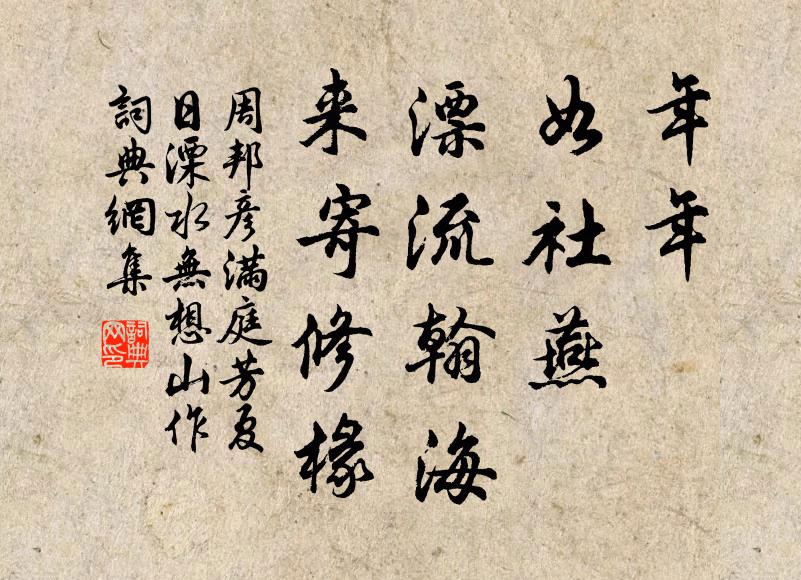 年年
如社燕
漂流瀚海
来寄修椽
周邦彦满庭芳夏
日溧水無想山作
詞典網集
詞典网印